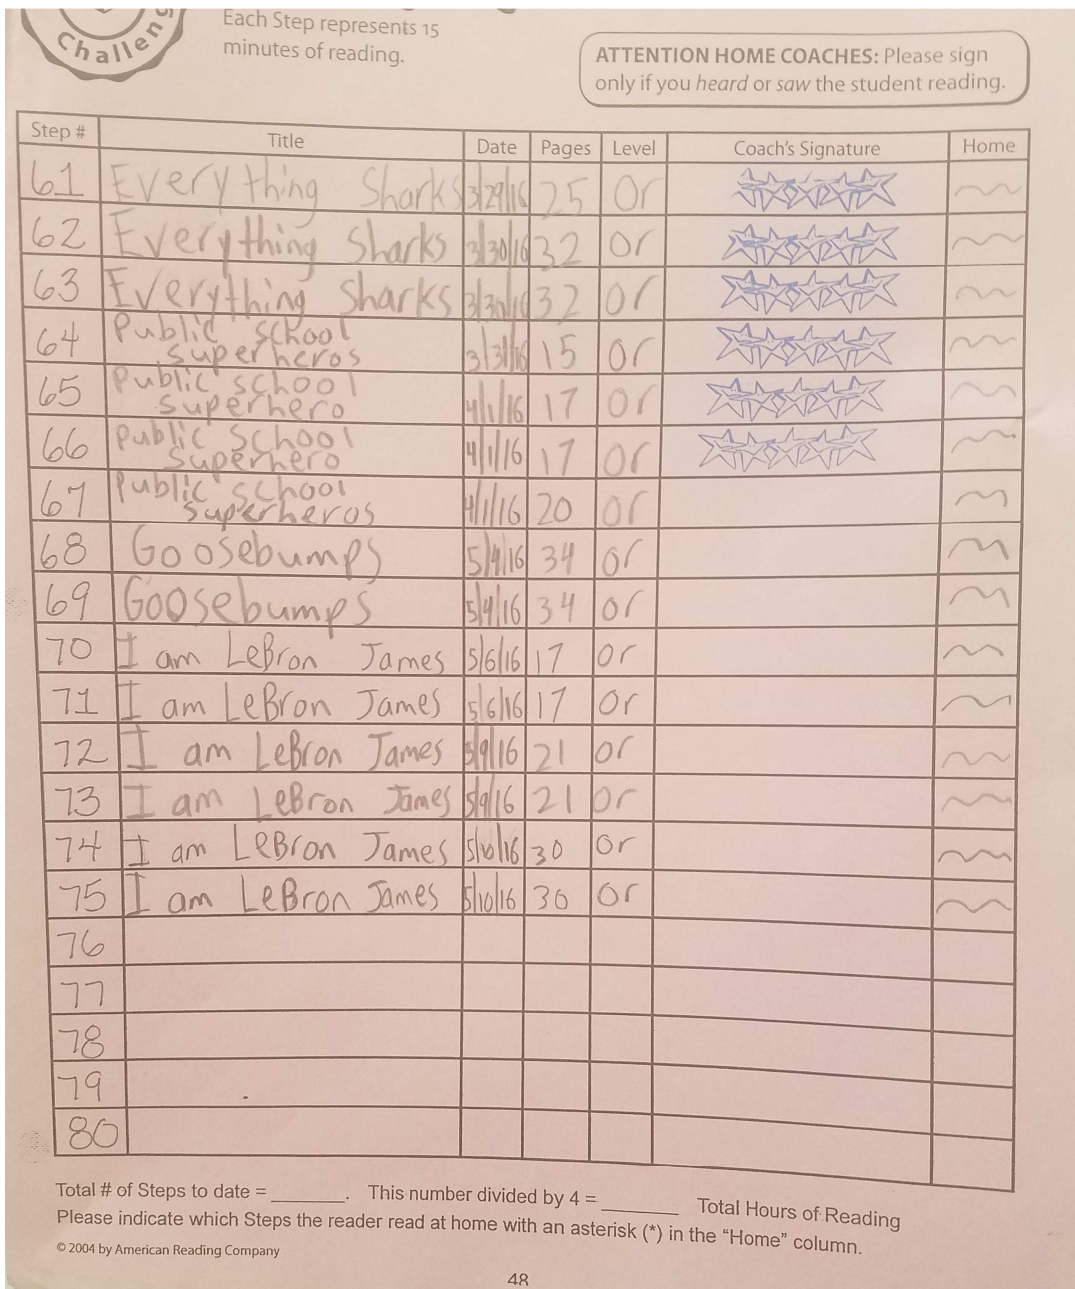 Challeng
Each Step represents 15
minutes of reading.
ATTENTION HOME COACHES: Please sign
only if you heard or saw the student reading.
Step # Title Date Pages Level Coach's Signature Home
61 Everything Sharks 3/29/16 25 Or
62 Everything Sharks 3/30/16 32 or
63 Everything Sharks 3/30/16 32 or
64 Public school
superheros 3/31/16 15 or
65 Public school
superhero 4/1/16 17 or
66 Public School
superhero 4/1/16 17 or
67 Public school
superheros 4/1/16 20 or
68 Goosebumps 5/4/16 34 or
69 Goosebumps 5/4/16 34 or
70 I am LeBron James 5/6/16 17 or
71 I am LeBron James 5/6/16 17 or
72 I am LeBron James 5/9/16 21 or
73 I am LeBron James 5/9/16 21 or
74 I am LeBron James 5/10/16 30 or
75 I am LeBron James 5/10/16 30 or
76
77
78
79
80
Total # of Steps to date = ______. This number divided by 4 = ______ Total Hours of Reading
Please indicate which Steps the reader read at home with an asterisk (*) in the "Home" column.
© 2004 by American Reading Company
48